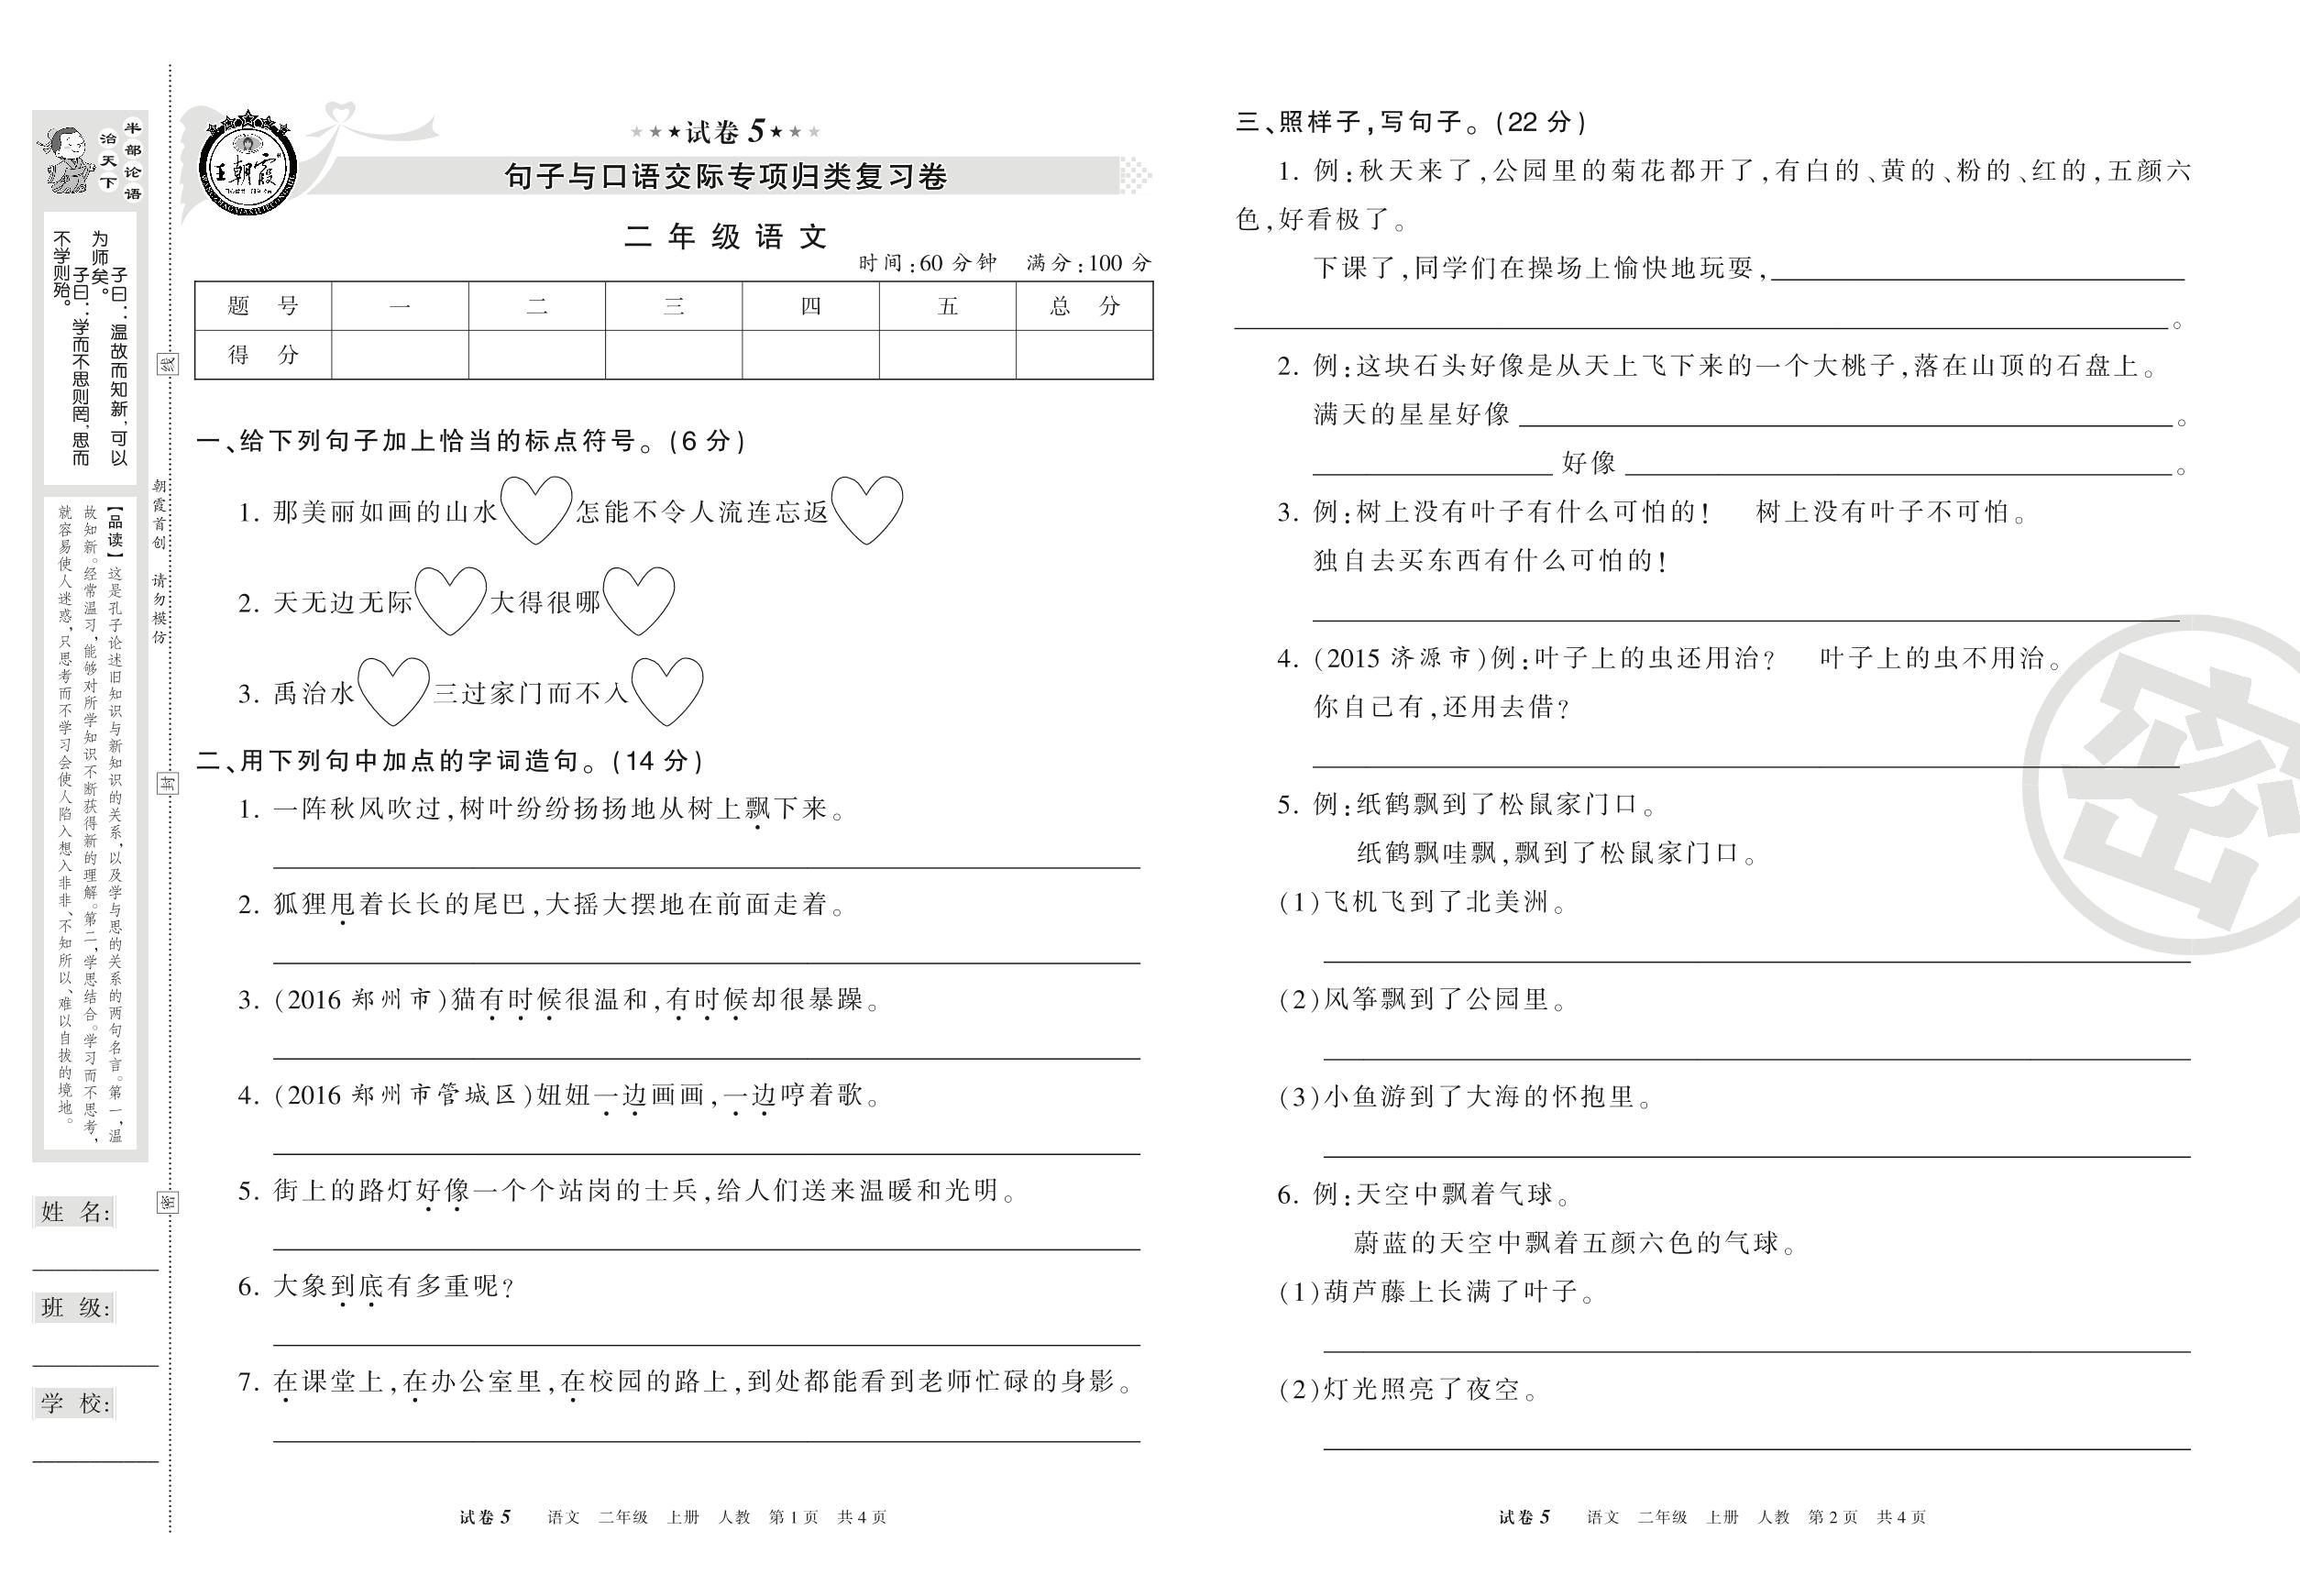 半部论语
治天下
子曰：温故而知新，可以
为师矣。
子曰：学而不思则罔，思而
不学则殆。
【品读】这是孔子论述旧知识与新知识的关系，以及学与思的关系的两句名言。第一，温
故知新。经常温习，能够对所学知识不断获得新的理解。第二，学思结合。学习而不思考，
就容易使人迷惑，只思考而不学习会使人陷入想入非非、不知所以、难以自拔的境地。
姓 名:
班 级:
学 校:
朝霞首创 请勿模仿
线
封
密
王朝霞
★★★试卷 5★★★
句子与口语交际专项归类复习卷
二年级语文
时间:60 分钟 满分:100 分
题 号 一 二 三 四 五 总 分
得 分
一、给下列句子加上恰当的标点符号。(6 分)
1. 那美丽如画的山水 怎能不令人流连忘返
2. 天无边无际 大得很哪
3. 禹治水 三过家门而不入
二、用下列句中加点的字词造句。(14 分)
1. 一阵秋风吹过,树叶纷纷扬扬地从树上飘下来。
2. 狐狸甩着长长的尾巴,大摇大摆地在前面走着。
3. (2016 郑州市)猫有时候很温和,有时候却很暴躁。
4. (2016 郑州市管城区)妞妞一边画画,一边哼着歌。
5. 街上的路灯好像一个个站岗的士兵,给人们送来温暖和光明。
6. 大象到底有多重呢?
7. 在课堂上,在办公室里,在校园的路上,到处都能看到老师忙碌的身影。
试卷 5 语文 二年级 上册 人教 第 1 页 共 4 页
三、照样子,写句子。(22 分)
1. 例:秋天来了,公园里的菊花都开了,有白的、黄的、粉的、红的,五颜六
色,好看极了。
下课了,同学们在操场上愉快地玩耍,
。
2. 例:这块石头好像是从天上飞下来的一个大桃子,落在山顶的石盘上。
满天的星星好像 。
好像 。
3. 例:树上没有叶子有什么可怕的! 树上没有叶子不可怕。
独自去买东西有什么可怕的!
4. (2015 济源市)例:叶子上的虫还用治? 叶子上的虫不用治。
你自己有,还用去借?
5. 例:纸鹤飘到了松鼠家门口。
纸鹤飘哇飘,飘到了松鼠家门口。
(1)飞机飞到了北美洲。
(2)风筝飘到了公园里。
(3)小鱼游到了大海的怀抱里。
6. 例:天空中飘着气球。
蔚蓝的天空中飘着五颜六色的气球。
(1)葫芦藤上长满了叶子。
(2)灯光照亮了夜空。
密
试卷 5 语文 二年级 上册 人教 第 2 页 共 4 页